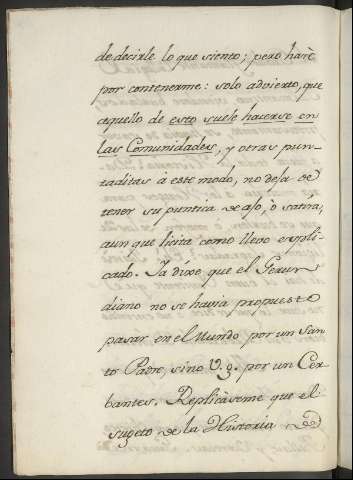 de decirle lo que siento; pero harè
por contenerme: solo advierto, que
aquello de esto suele hacerse en
las Comunidades, y otras pun-
taditas à este modo, no deja de
tener su puntica de ajo, ò satira,
aunque licita como llevo expli-
cado. Ya dixo que el Gerun-
diano no se havia propuesto
pasar en el Mundo por un San-
to Padre, sino V. g. por un Cer-
bantes. Replicaseme que el
sugeto de la Historia